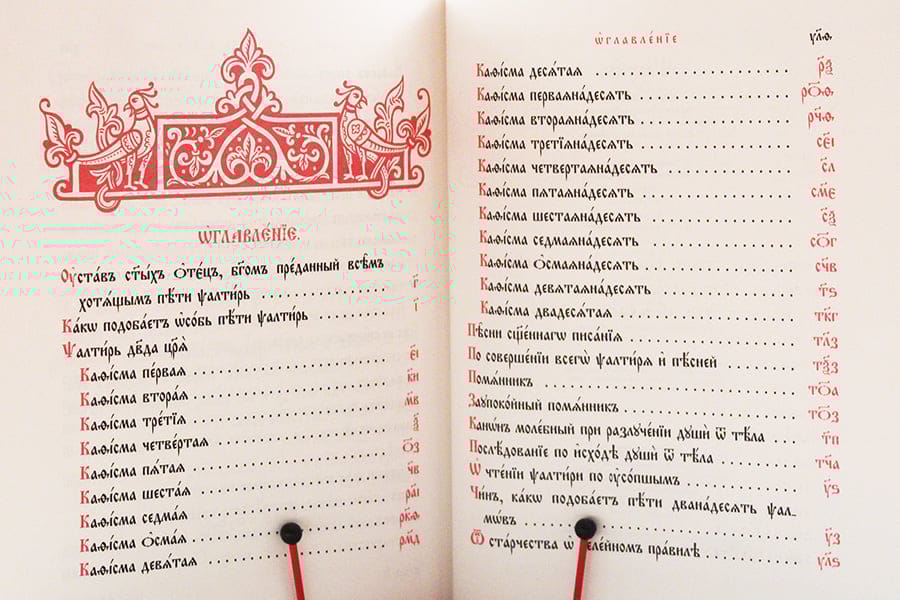 Ѡ҆главле́нїе.
Оу҆ста́въ ст҃ы́хъ ѻ҆те́цъ, бг҃омъ пре́данный всѣ̑мъ
хотѧ́щымъ пѣ́ти ѱалти́рь .......... г҃
Ка́кѡ подоба́етъ ѡ҆со́бь пѣ́ти ѱалти́рь .......... і҃
Ѱалти́рь дв҃да цр҃ѧ̀
Каѳі́сма пе́рваѧ .......... є҃і
Каѳі́сма втора́ѧ .......... к҃и
Каѳі́сма тре́тїѧ .......... м҃в
Каѳі́сма четве́ртаѧ ..........
Каѳі́сма пѧ́таѧ .......... ѻ҃з
Каѳі́сма шеста́ѧ .......... ч҃в
Каѳі́сма седма́ѧ .......... ра҃і
Каѳі́сма ѻ҆сма́ѧ .......... рк҃ѳ
Каѳі́сма девѧ́таѧ .......... рм҃д
Ѡ҆главле́нїе
ул҃ѳ
Каѳі́сма десѧ́таѧ .......... рѯ҃а
Каѳі́сма перваѧна́десѧть .......... ро҃ѳ
Каѳі́сма втораѧна́десѧть .......... рч҃ѳ
Каѳі́сма третїѧна́десѧть .......... сє҃і
Каѳі́сма четвертаѧна́десѧть .......... с҃л
Каѳі́сма пѧтаѧна́десѧть .......... см҃є
Каѳі́сма шестаѧна́десѧть .......... сѯ҃а
Каѳі́сма седмаѧна́десѧть .......... со҃г
Каѳі́сма ѻ҆смаѧна́десѧть .......... сч҃в
Каѳі́сма девѧтаѧна́десѧть .......... т҃ѕ
Каѳі́сма двадесѧ́таѧ .......... тк҃г
Пѣ̑сни сщ҃е́ннагѡ писа́нїѧ .......... тл҃з
По соверше́нїи всегѡ̀ ѱалтирѧ̀ и҆ пѣ́сней .......... тѯ҃з
Помѧ́нникъ .......... то҃а
Заупоко́йный помѧ́нникъ .......... то҃з
Канѡ́нъ моле́бный при разлуче́нїи дꙋшѝ ѿ тѣ́ла .... т҃п
Послѣ́дованїе по и҆схо́дѣ дꙋшѝ ѿ тѣ́ла .......... тч҃а
Ѡ҆ чте́нїи ѱалти́ри по ᲂу҆со́пшымъ .......... у҃ѕ
Чи́нъ, ка́кѡ подоба́етъ пѣ́ти двана́десѧть ѱал-
мѡ́въ .......... у҃з
Ѿ ста́рчества ѡ҆ правилѣ .......... ул҃ѕ